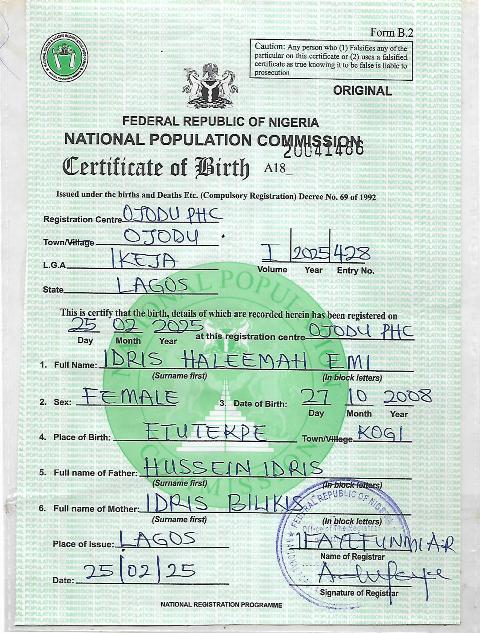 Form B.2
Caution: Any person who (1) Falsifies any of the
particular on this certificate or (2) uses a falsified
certificate as true knowing it to be false is liable to
prosecution
ORIGINAL
FEDERAL REPUBLIC OF NIGERIA
NATIONAL POPULATION COMMISSION
Certificate of Birth A18 20041486
Issued under the births and Deaths Etc. (Compulsory Registration) Decree No. 69 of 1992
Registration Centre OJODU PHC
Town/Village OJODU
L.G.A IKEJA 1 2025 428
Volume Year Entry No.
State LAGOS
This is certify that the birth, details of which are recorded herein has been registered on
25 02 2025 at this registration centre OJODU PHC
Day Month Year
1. Full Name: IDRIS HALEEMAH EMI
(Surname first) (In block letters)
2. Sex: FEMALE 3. Date of Birth: 27 10 2008
Day Month Year
4. Place of Birth: ETUTEKPE Town/Village KOGI
5. Full name of Father: HUSSEIN IDRIS
(Surname first) (In block letters)
6. Full name of Mother: IDRIS BILIKIS
(Surname first) (In block letters)
Place of Issue: LAGOS IFAYEFUNMI A.R
Name of Registrar
Date: 25/02/25
Signature of Registrar
NATIONAL REGISTRATION PROGRAMME